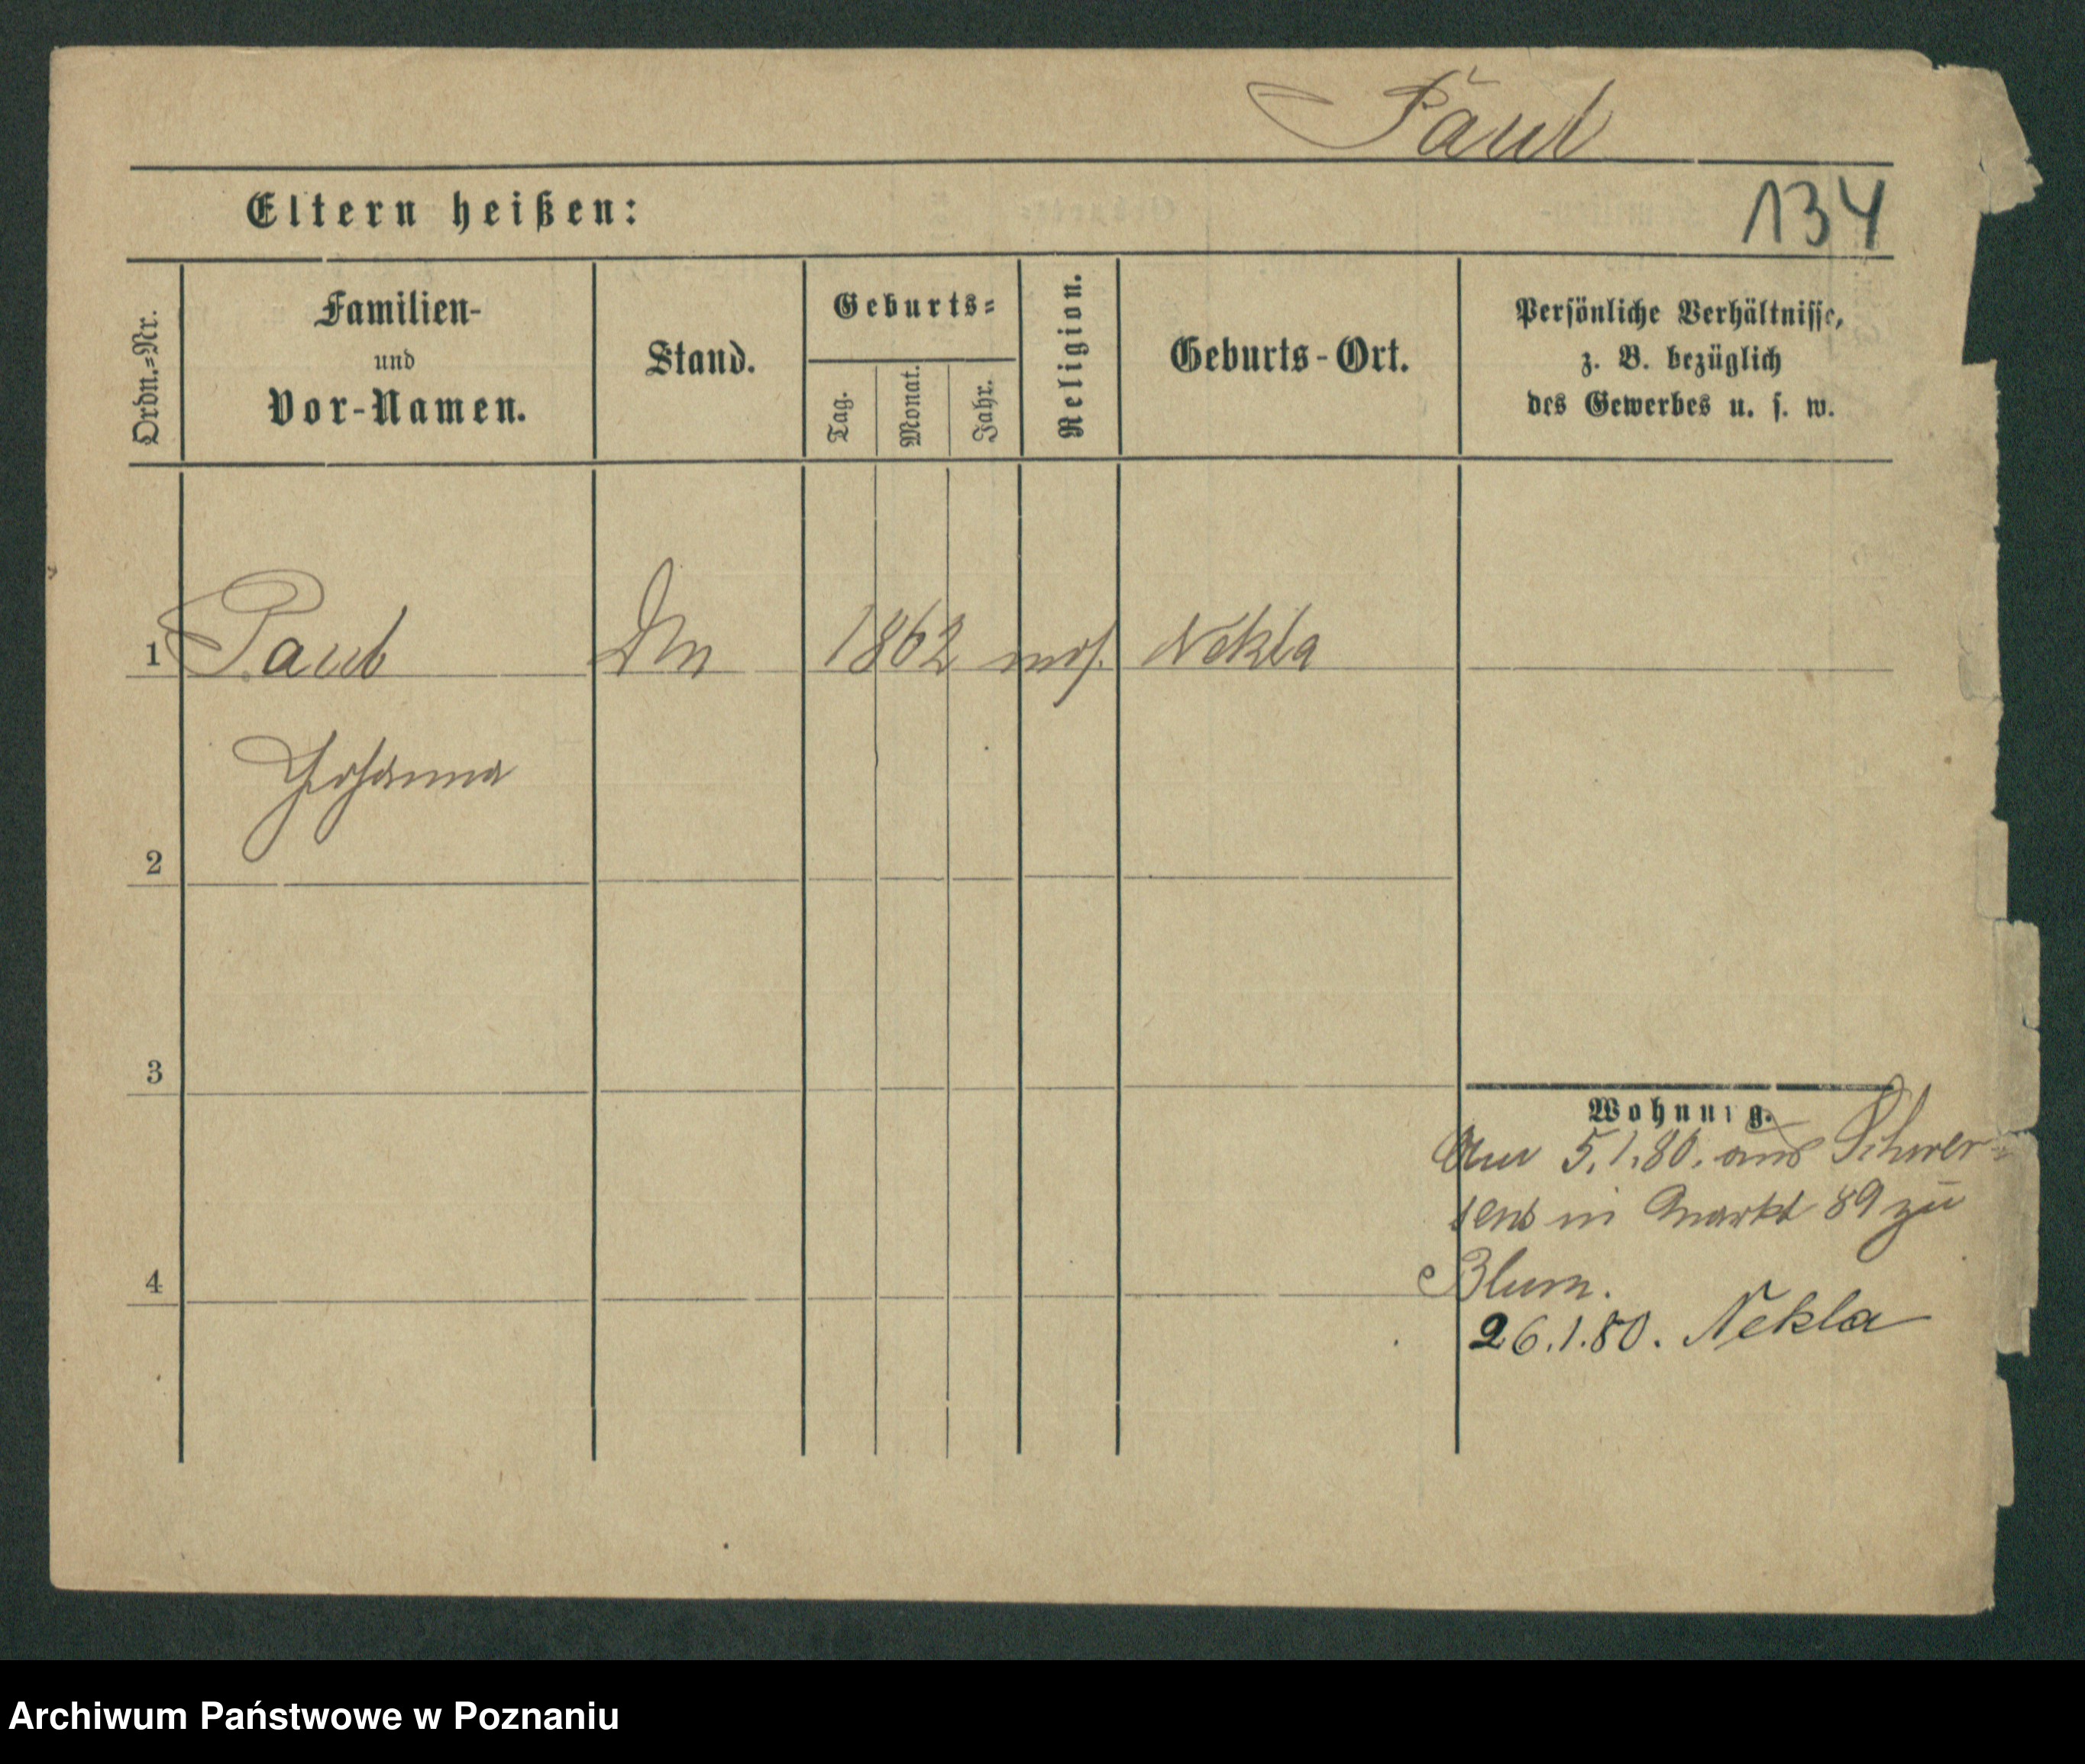 Paul
Eltern heißen:
134
Ordn.=Nr.
Familien-
und
Vor-Namen.
Stand.
Geburts=
Tag.
Monat.
Jahr.
Religion.
Geburts-Ort.
Persönliche Verhältnisse,
z. B. bezüglich
des Gewerbes u. s. w.
1 Paul 1862 mos. Nekla
Johanna
2
3
Wohnung.
5.1.80. aus Schwer-
senz in Markt 89 zu
Blum.
4
26.1.80. Nekla
Archiwum Państwowe w Poznaniu